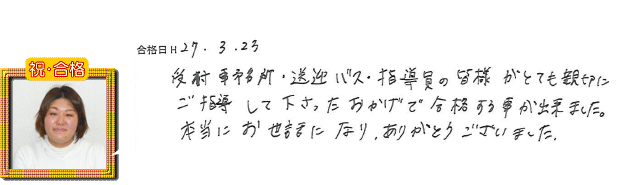 祝・合格
合格日 H 27. 3. 23
受付事務所・送迎バス・指導員の皆様がとても親切に
ご指導して下さったおかげで合格する事が出来ました。
本当にお世話になり、ありがとうございました。